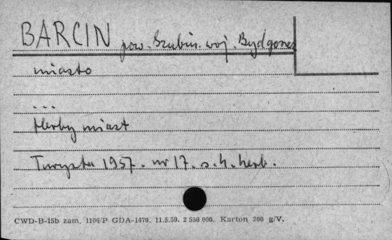 BARCIN pow. Szubin. woj. Bydgoszcz
miasto
...
Herby miast
Turysta 1957. nr 17. s. 4. herb.
CWD-B-15b zam. 1104/P GDA-1478. 11.5.59. 2 550 000. Karton 200 g/V.